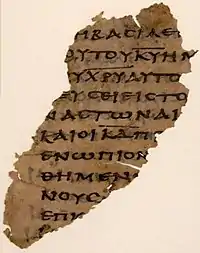 ΗΒΑϹΙΛΕΙ
ΟΥΤΟΥΚΥΗΜ
ΥΧΡΥΑΥΤΟ
ΕΥϹΕΙΕΙϹΤΟ
ΝΑϹΤΩΝΑΙ
ΚΑΙΟΙΚΔΠ
ΕΝΩΠΙΟΝ
ΘΗΜΕΝ
ΝΟΥϹ
ΕΠΙ